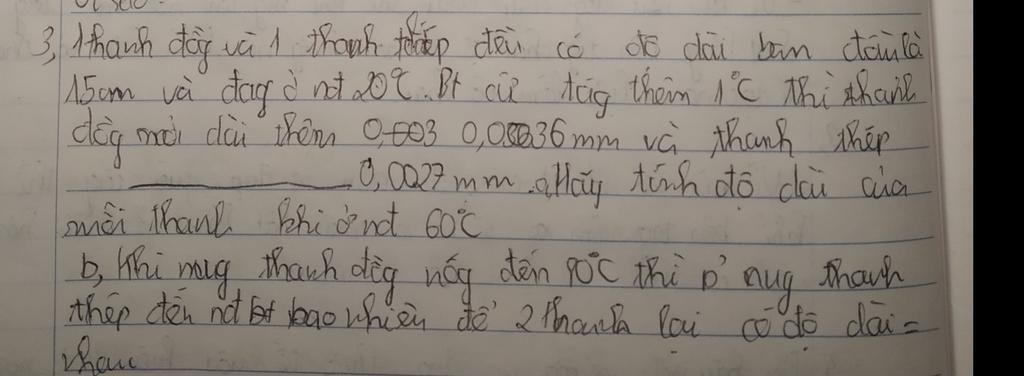 3, 1 thanh đồg và 1 thanh thép đều có độ dài ban đầu là
15cm và đag ở nđ 20°C. Bt cứ tăg thêm 1°C thì thanh
đồg mới dài thêm 0,0036mm và thanh thép
0,0027mm. a, Hãy tính độ dài của
mỗi thanh khi ở nđ 60°C
b, Khi nug thanh đồg nóg đến 90°C thì p' nug thanh
thép đến nđ bao nhiêu để 2 thanh lại có độ dài =
nhau